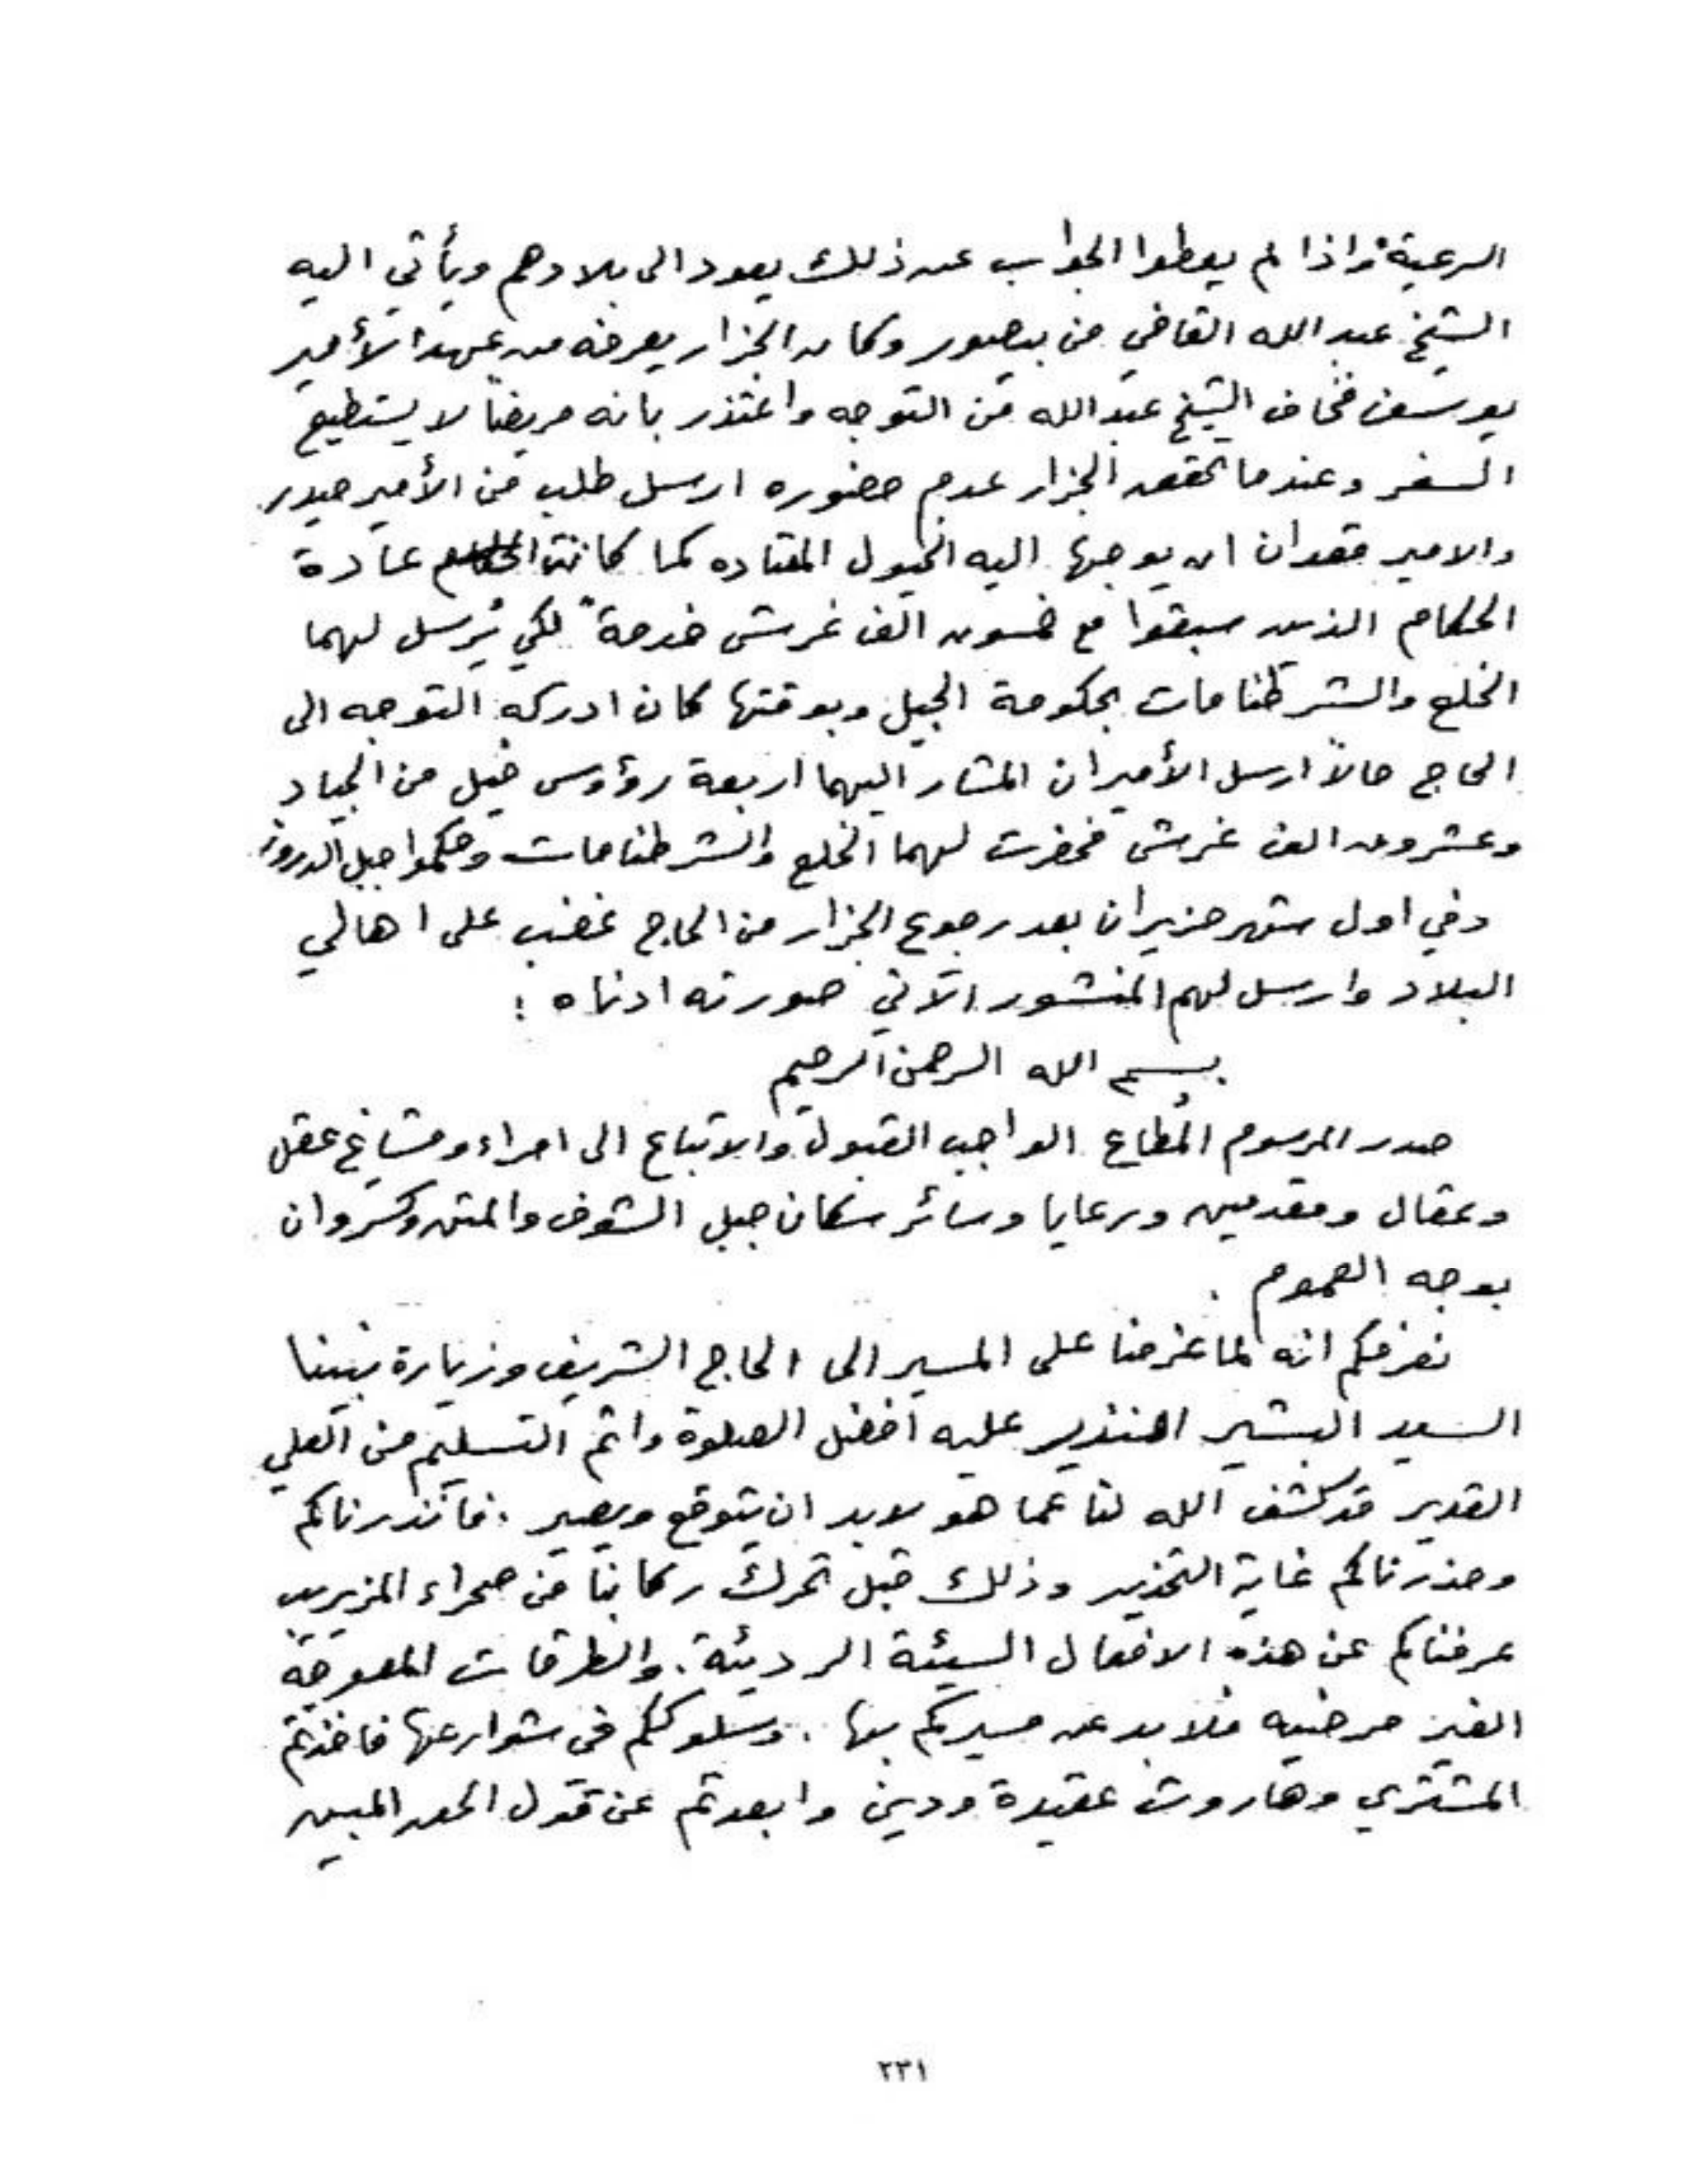 الرعية واذا لم يعطوا الجواب عن ذلك يعود الى بلادهم ويأتي اليه
الشيخ عبد الله القاضي من بيصور وكان الجزار يعرفه من عهد الأمير
يوسف فخاف الشيخ عبد الله من التوجه واعتذر بانه مريضاً لا يستطيع
السفر وعندما تحقق الجزار عدم حضوره ارسل طلب من الأمير حيدر
والامير قعدان ان يوجها اليه الخيول المعتاده كما كانت عادة
الحكام الذين سبقوا مع خمسون الف غرش خدمةً لكي يُرسل لهما
الخلع والشرطنامات بحكومة الجبل وبوقتها كان ادركه التوجه الى
الحاج حالاً ارسل الأميران المشار اليهما اربعة رؤوس خيل من الجياد
وعشرون الف غرش فحضرت لهما الخلع والشرطنامات وحكموا جبل الدروز
وفي اول شهر حزيران بعد رجوع الجزار من الحاج غضب على اهالي
البلاد وارسل لهم المنشور الآتي صورته ادناه :
بسم الله الرحمن الرحيم
صدر المرسوم المُطاع الواجب القبول والاتباع الى امراء ومشايخ عقل
وعقال ومقدمين ورعايا وسائر سكان جبل الشوف والمتن وكسروان
بوجه العموم .
نعرفكم انه لما عزمنا على المسير الى الحاج الشريف وزيارة نبينا
السيد البشير النذير عليه افضل الصلوة واتم التسليم من العلي
القدير قد كشف الله لنا عما هو لابد ان يتوقع ويصير . فانذرناكم
وحذرناكم غاية التحذير وذلك قبل تحرك ركابنا من صحراء المزيريب
عرفناكم عن هذه الافعال السيئة الرديئة . والطرقات المعوجة
الغير مرضيه فلابد عن مسيركم بها . وسلوككم في شوارعها فاخذتم
المشتري وهاروت عقيدة ودين وابعدتم عن قول الحق المبين
٢٣١